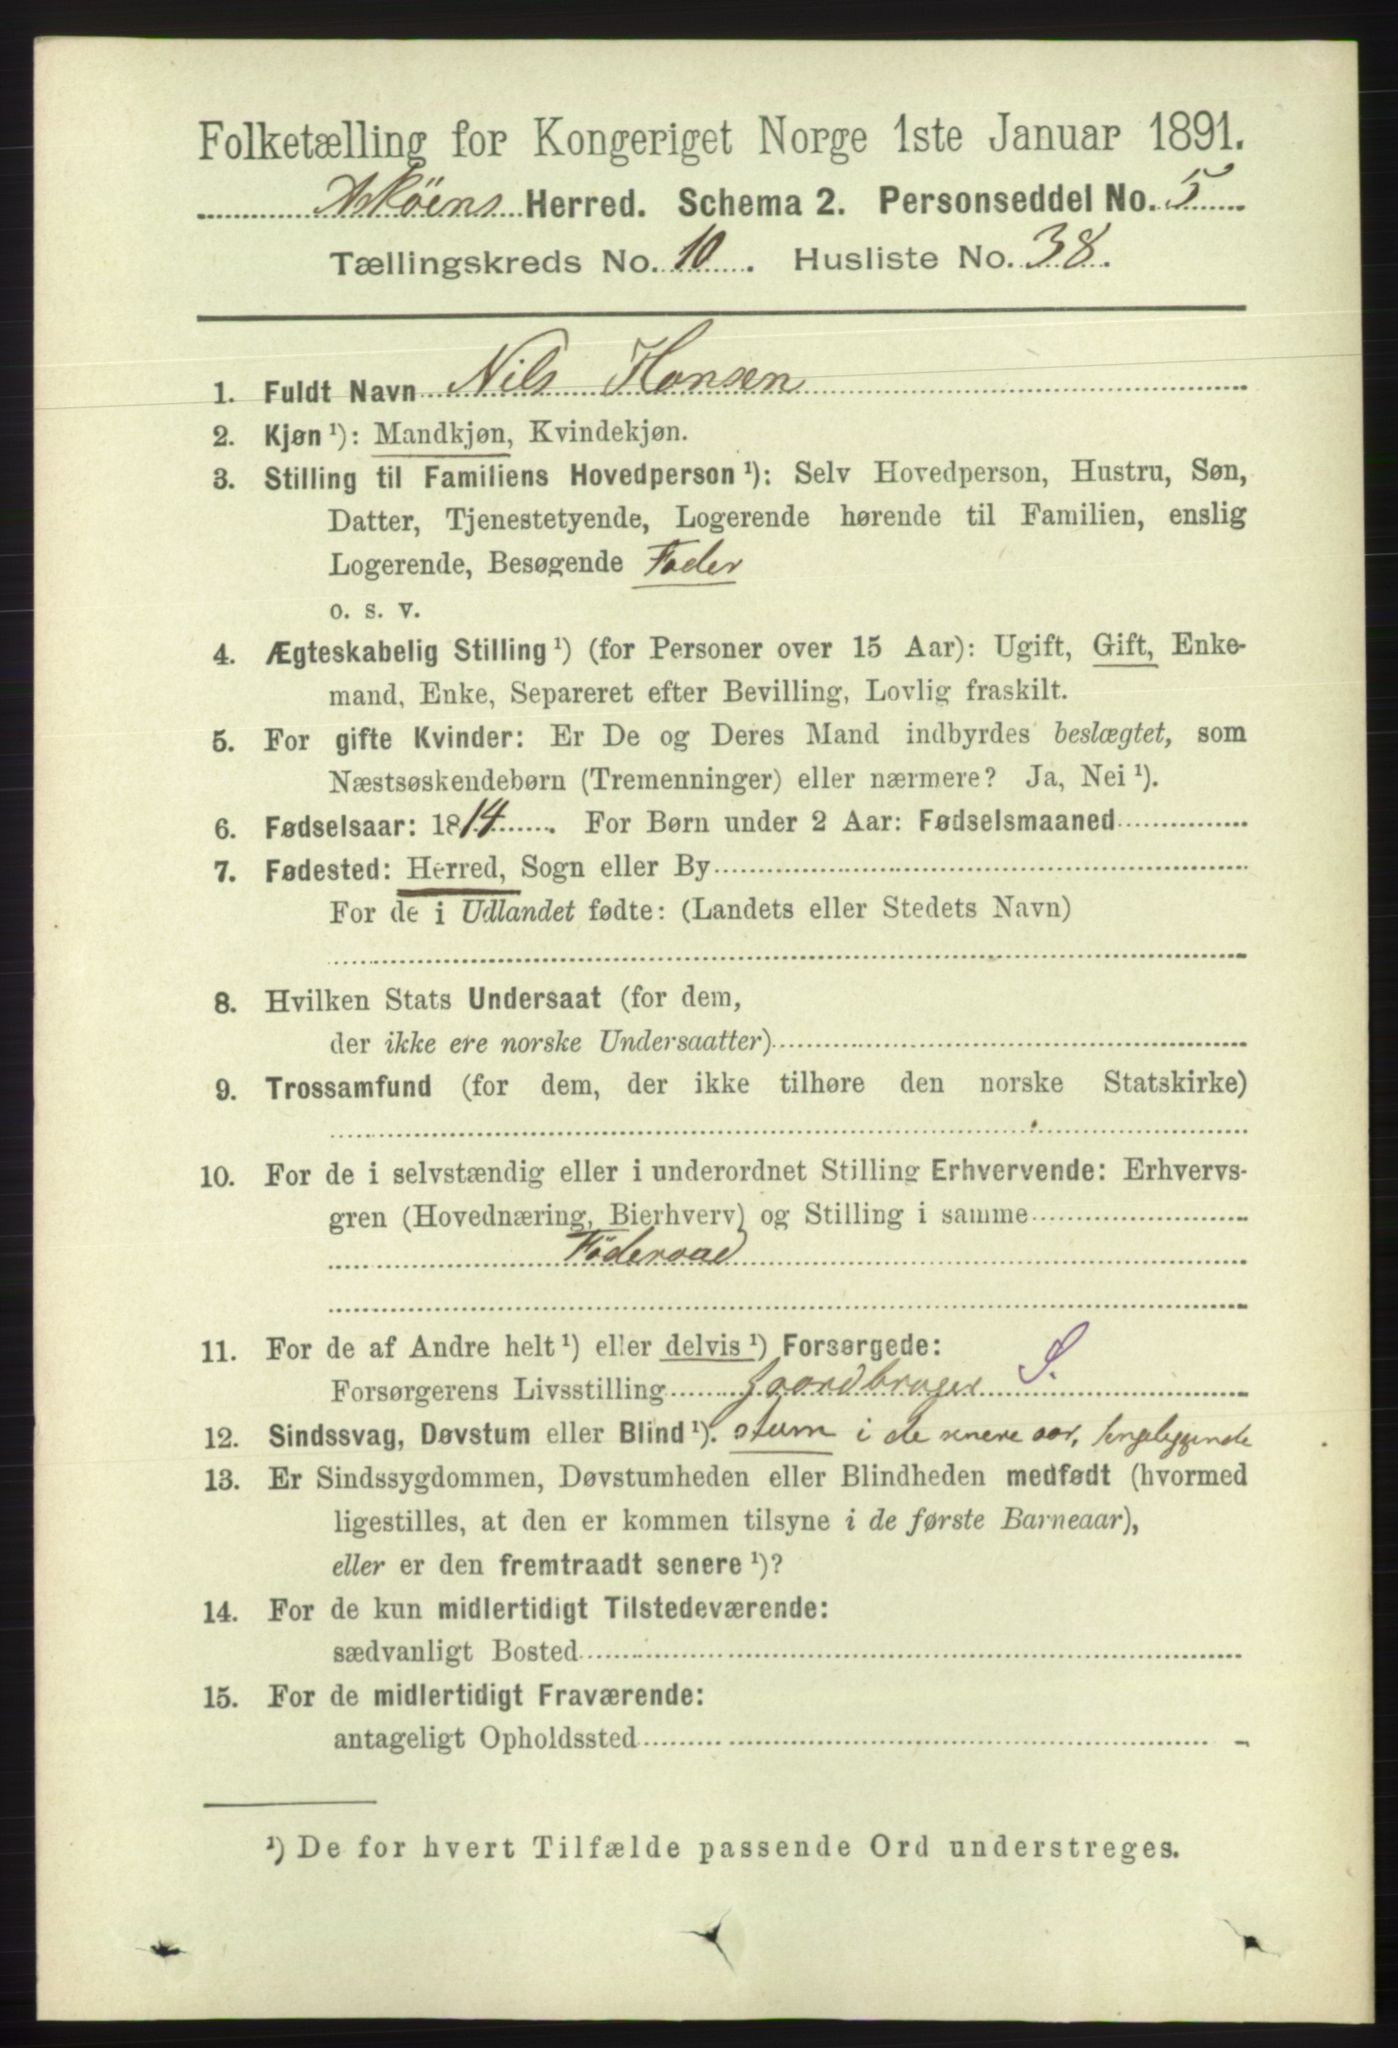 Folketælling for Kongeriget Norge 1ste Januar 1891.
Askøens Herred. Schema 2. Personseddel No. 5
Tællingskreds No. 10. Husliste No. 38.
1. Fuldt Navn Nils Hansen
2. Kjøn ¹): Mandkjøn, Kvindekjøn.
3. Stilling til Familiens Hovedperson ¹): Selv Hovedperson, Hustru, Søn,
Datter, Tjenestetyende, Logerende hørende til Familien, enslig
Logerende, Besøgende Fader
o. s. v.
4. Ægteskabelig Stilling ¹) (for Personer over 15 Aar): Ugift, Gift, Enke-
mand, Enke, Separeret efter Bevilling, Lovlig fraskilt.
5. For gifte Kvinder: Er De og Deres Mand indbyrdes beslægtet, som
Næstsøskendebørn (Tremenninger) eller nærmere? Ja, Nei ¹).
6. Fødselsaar: 1814. For Børn under 2 Aar: Fødselsmaaned
7. Fødested: Herred, Sogn eller By
For de i Udlandet fødte: (Landets eller Stedets Navn)
8. Hvilken Stats Undersaat (for dem,
der ikke ere norske Undersaatter)
9. Trossamfund (for dem, der ikke tilhøre den norske Statskirke)
10. For de i selvstændig eller i underordnet Stilling Erhvervende: Erhvervs-
gren (Hovednæring, Bierhverv) og Stilling i samme
Föderaad
11. For de af Andre helt ¹) eller delvis ¹) Forsørgede:
Forsørgerens Livsstilling Gaardbruger S.
12. Sindssvag, Døvstum eller Blind ¹). stum i de senere aar,
13. Er Sindssygdommen, Døvstumheden eller Blindheden medfødt (hvormed
ligestilles, at den er kommen tilsyne i de første Barneaar),
eller er den fremtraadt senere ¹)?
14. For de kun midlertidigt Tilstedeværende:
sædvanligt Bosted
15. For de midlertidigt Fraværende:
antageligt Opholdssted
¹) De for hvert Tilfælde passende Ord understreges.